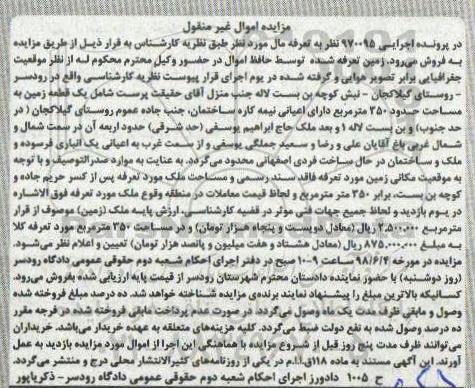 مزایده اموال غیر منقول
در پرونده اجرایی ۹۷۰۰۹۵ نظر به تعرفه مال مورد نظر طبق نظریه کارشناس به قرار ذیل از طریق مزایده
به فروش می‌رود. زمین تعرفه شده توسط حافظ اموال در حضور وکیل محترم محکوم له از نظر موقعیت
جغرافیایی برابر تصویر هوایی و گرفته شده در یوم اجرای قرار پیوست نظریه کارشناسی واقع در رودسر
- روستای گیلاکجان - نبش کوچه بن بست لاله جنب منزل آقای حقیقت پرست شامل یک قطعه زمین به
مساحت حدود ۳۵۰ مترمربع دارای اعیانی نیمه کاره ساختمان، جنب جاده عموم روستای گیلاکجان ( در
حد جنوب) و بن بست لاله ۱ و بعد ملک حاج ابراهیم یوسفی (حد شرقی) حدود اربعه آن در سمت شمال و
شمال غربی باغ آقایان علی و رضا و سعید جملگی یوسفی و از سمت غرب به اعیانی یک انباری فرسوده و
ملک و ساختمان در حال ساخت فردی اصفهانی محدود می‌گردد. به عنایت به موارد صدرالتوصیف و با توجه
به موقعیت مکانی زمین مورد تعرفه فاقد سند رسمی و مساحت ملک مورد تعرفه پس از کسر حریم جاده و
کوچه بن بست، برابر ۳۵۰ متر مترمربع و لحاظ قیمت معاملات در منطقه وقوع ملک مورد تعرفه فوق الاشاره
در یوم بازدید و لحاظ جمیع جهات فنی موثر در قضیه کارشناسی، ارزش پایه ملک (زمین) موصوف از قرار
مترمربع ۲,۵۰۰,۰۰۰ ریال (معادل دویست و پنجاه هزار تومان) و در مساحت ۳۵۰ مترمربع مورد تعرفه کلا
به مبلغ ۸۷۵,۰۰۰,۰۰۰ ریال (معادل هشتاد و هفت میلیون و پانصد هزار تومان) تعیین و اعلام نظر می‌شود.
مزایده در مورخه ۹۸/۶/۴ از ۹-۱۰ صبح در دفتر اجرای احکام شعبه دوم حقوقی عمومی دادگاه رودسر
(روز دوشنبه) با حضور نماینده دادستان محترم شهرستان رودسر از قیمت پایه ارزیابی شده بفروش می‌رود.
کسانیکه بالاترین مبلغ را پیشنهاد نمایند برنده‌ی مزایده شناخته خواهد شد. ده درصد مبلغ فروخته شده
وصول و مابقی ظرف مدت یک ماه وصول می‌گردد. در صورت عدم پرداخت مابقی فروخته شده در فرجه مقرر
ده درصد وصول شده به نفع دولت ضبط می‌گردد. کلیه هزینه‌های متعلقه به عهده خریدار می‌باشد. خریداران
می‌توانند ظرف مدت پنج روز قبل از شروع مزایده با هماهنگی این اجرا از اموال مورد مزایده بازدید به عمل
آورند. این آگهی مستند به ماده ۱۱۸ ق.ا.ا.م در یکی از روزنامه‌های کثیرالانتشار محلی درج و منتشر می‌گردد.
ح ۱۰۰۵ دادورز اجرای احکام شعبه دوم حقوقی عمومی دادگاه رودسر- ذکریاپور